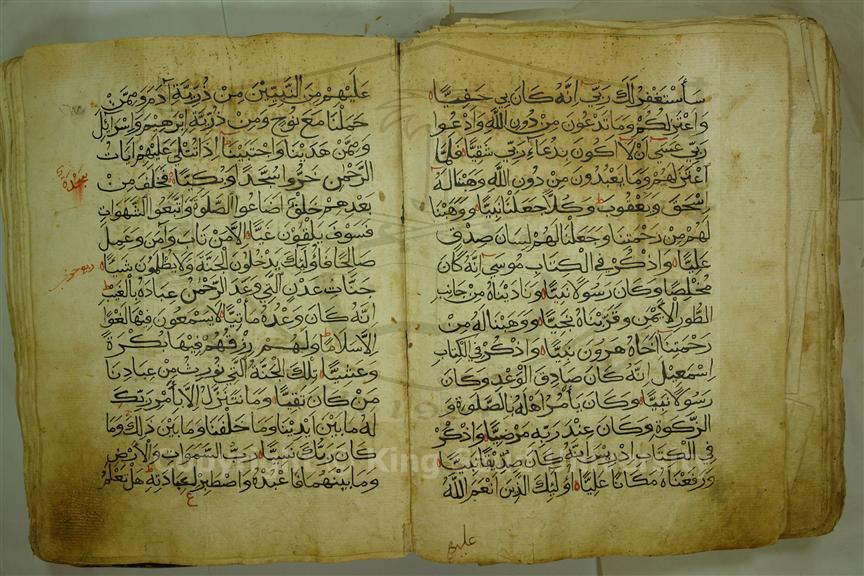 سَأَسْتَغْفِرُ لَكَ رَبِّي اِنَّهُ كَانَ بِي حَفِيًّا
وَاَعْتَزِلُكُمْ وَمَا تَدْعُونَ مِنْ دُونِ اللّٰهِ وَاَدْعُوا
رَبِّي عَسٰى اَنْ لَا اَكُونَ بِدُعَاءِ رَبِّي شَقِيًّا فَلَمَّا
اعْتَزَلَهُمْ وَمَا يَعْبُدُونَ مِنْ دُونِ اللّٰهِ وَهَبْنَا لَهُ
اِسْحٰقَ وَيَعْقُوبَ وَكُلًّا جَعَلْنَا نَبِيًّا وَوَهَبْنَا
لَهُمْ مِنْ رَحْمَتِنَا وَجَعَلْنَا لَهُمْ لِسَانَ صِدْقٍ
عَلِيًّا وَاذْكُرْ فِي الْكِتَابِ مُوسٰى اِنَّهُ كَانَ
مُخْلَصًا وَكَانَ رَسُولًا نَبِيًّا وَنَادَيْنَاهُ مِنْ جَانِبِ
الطُّورِ الْاَيْمَنِ وَقَرَّبْنَاهُ نَجِيًّا وَوَهَبْنَا لَهُ مِنْ
رَحْمَتِنَا اَخَاهُ هٰرُونَ نَبِيًّا وَاذْكُرْ فِي الْكِتَابِ
اِسْمٰعِيلَ اِنَّهُ كَانَ صَادِقَ الْوَعْدِ وَكَانَ
رَسُولًا نَبِيًّا وَكَانَ يَأْمُرُ اَهْلَهُ بِالصَّلٰوةِ وَ
الزَّكٰوةِ وَكَانَ عِنْدَ رَبِّهِ مَرْضِيًّا وَاذْكُرْ
فِي الْكِتَابِ اِدْرِيسَ اِنَّهُ كَانَ صِدِّيقًا نَبِيًّا
وَرَفَعْنَاهُ مَكَانًا عَلِيًّا اُولٰئِكَ الَّذِينَ اَنْعَمَ اللّٰهُ
عليهم
عَلَيْهِمْ مِنَ النَّبِيِّينَ مِنْ ذُرِّيَّةِ آدَمَ وَمِمَّنْ
حَمَلْنَا مَعَ نُوحٍ وَمِنْ ذُرِّيَّةِ اِبْرٰهِيمَ وَاِسْرَائِلَ
وَمِمَّنْ هَدَيْنَا وَاجْتَبَيْنَا اِذَا تُتْلٰى عَلَيْهِمْ اٰيَاتُ
الرَّحْمٰنِ خَرُّوا سُجَّدًا وَبُكِيًّا فَخَلَفَ مِنْ
سجدة
بَعْدِهِمْ خَلْفٌ اَضَاعُوا الصَّلٰوةَ وَاتَّبَعُوا الشَّهَوَاتِ
فَسَوْفَ يَلْقَوْنَ غَيًّا اِلَّا مَنْ تَابَ وَآمَنَ وَعَمِلَ
صَالِحًا فَاُولٰئِكَ يَدْخُلُونَ الْجَنَّةَ وَلَا يُظْلَمُونَ شَيْئًا
جَنَّاتِ عَدْنٍ الَّتِي وَعَدَ الرَّحْمٰنُ عِبَادَهُ بِالْغَيْبِ
اِنَّهُ كَانَ وَعْدُهُ مَأْتِيًّا لَا يَسْمَعُونَ فِيهَا لَغْوًا
اِلَّا سَلَامًا وَلَهُمْ رِزْقُهُمْ فِيهَا بُكْرَةً
وَعَشِيًّا تِلْكَ الْجَنَّةُ الَّتِي نُورِثُ مِنْ عِبَادِنَا
مَنْ كَانَ تَقِيًّا وَمَا نَتَنَزَّلُ اِلَّا بِأَمْرِ رَبِّكَ
لَهُ مَا بَيْنَ اَيْدِينَا وَمَا خَلْفَنَا وَمَا بَيْنَ ذٰلِكَ وَمَا
كَانَ رَبُّكَ نَسِيًّا رَبُّ السَّمٰوَاتِ وَالْاَرْضِ
وَمَا بَيْنَهُمَا فَاعْبُدْهُ وَاصْطَبِرْ لِعِبَادَتِهِ هَلْ تَعْلَمُ
ع